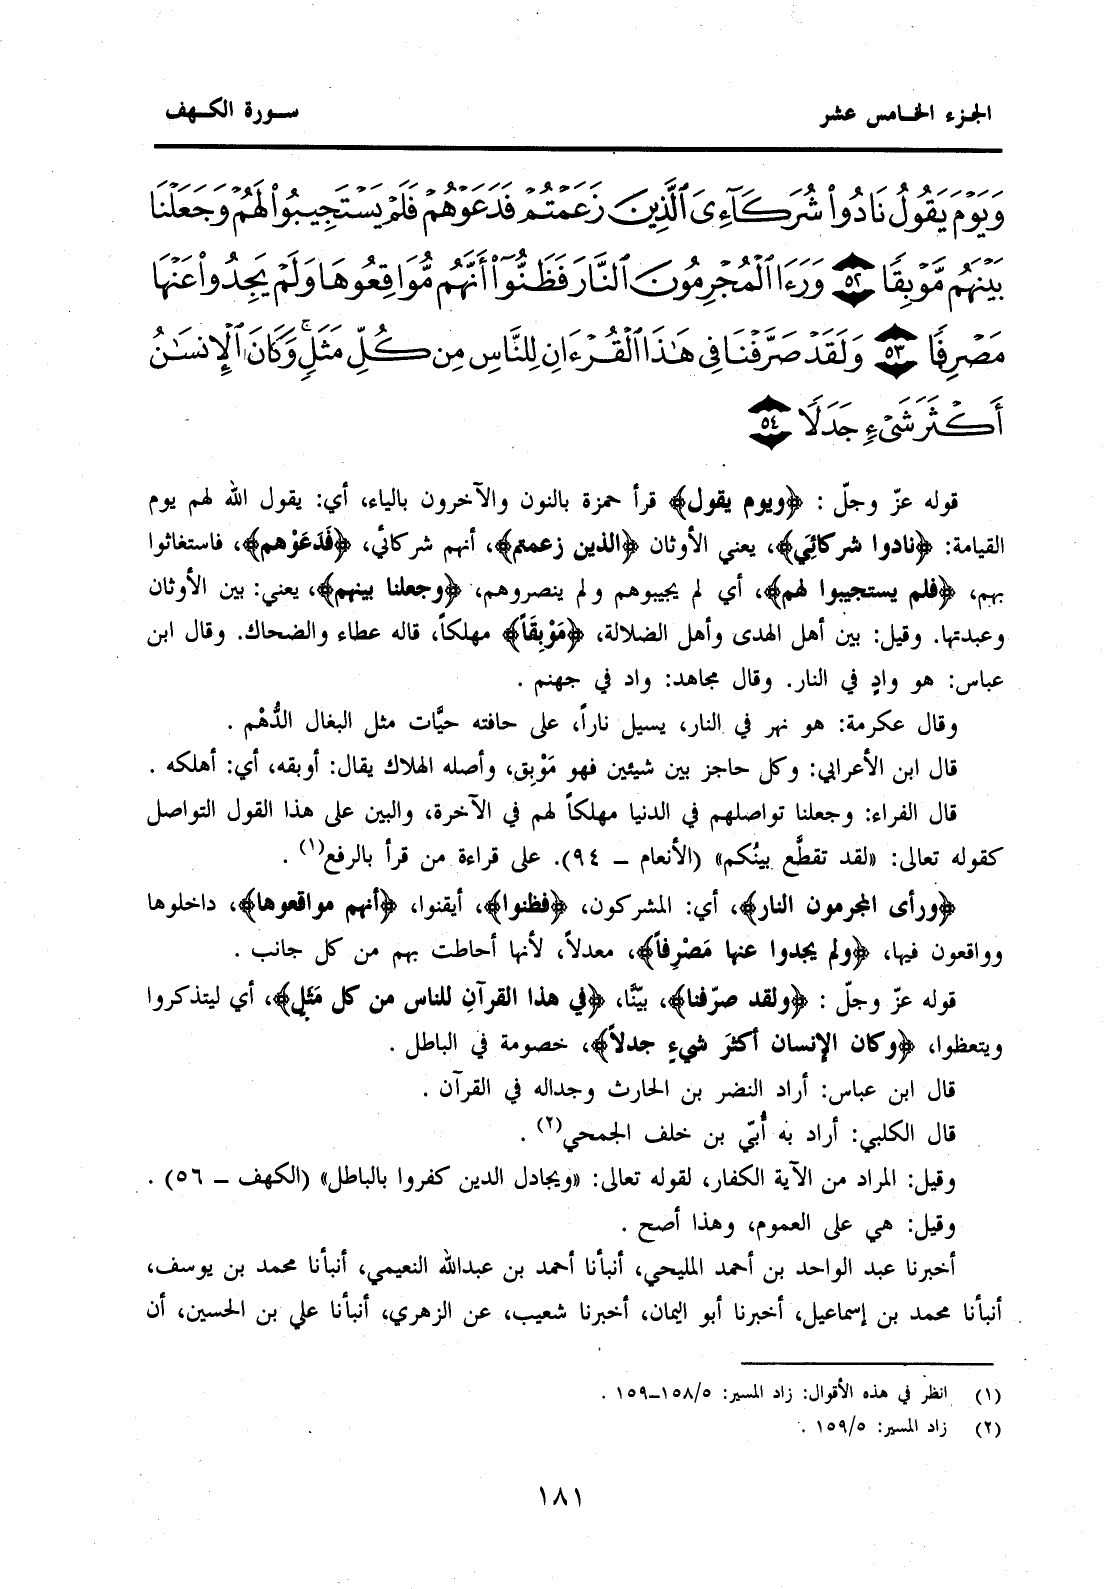 الجزء الخامس عشر
سورة الكهف
وَيَوْمَ يَقُولُ نَادُوا۟ شُرَكَآءِىَ ٱلَّذِينَ زَعَمْتُمْ فَدَعَوْهُمْ فَلَمْ يَسْتَجِيبُوا۟ لَهُمْ وَجَعَلْنَا
بَيْنَهُم مَّوْبِقًا ٥٢ وَرَءَا ٱلْمُجْرِمُونَ ٱلنَّارَ فَظَنُّوٓا۟ أَنَّهُم مُّوَاقِعُوهَا وَلَمْ يَجِدُوا۟ عَنْهَا
مَصْرِفًا ٥٣ وَلَقَدْ صَرَّفْنَا فِى هَٰذَا ٱلْقُرْءَانِ لِلنَّاسِ مِن كُلِّ مَثَلٍ ۚ وَكَانَ ٱلْإِنسَٰنُ
أَكْثَرَ شَىْءٍ جَدَلًا ٥٤
قوله عزّ وجلّ : ﴿ويوم يقول﴾ قرأ حمزة بالنون والآخرون بالياء، أي: يقول الله لهم يوم
القيامة: ﴿نادوا شركائِي﴾، يعني الأوثان ﴿الذين زعمتم﴾، أنهم شركائي، ﴿فَدَعَوْهم﴾، فاستغاثوا
بهم، ﴿فلم يستجيبوا لهم﴾، أي لم يجيبوهم ولم ينصروهم، ﴿وجعلنا بينهم﴾، يعني: بين الأوثان
وعبدتها. وقيل: بين أهل الهدى وأهل الضلالة، ﴿مَوْبِقَاً﴾ مهلكاً، قاله عطاء والضحاك. وقال ابن
عباس: هو وادٍ في النار. وقال مجاهد: واد في جهنم .
وقال عكرمة: هو نهر في النار، يسيل ناراً، على حافته حيَّات مثل البغال الدُّهْم .
قال ابن الأعرابي: وكل حاجز بين شيئين فهو مَوْبِق، وأصله الهلاك يقال: أوبقه، أي: أهلكه .
قال الفراء: وجعلنا تواصلهم في الدنيا مهلكاً لهم في الآخرة، والبين على هذا القول التواصل
كقوله تعالى: «لقد تقطَّع بينُكم» (الأنعام – ٩٤). على قراءة من قرأ بالرفع(١) .
﴿ورأى المجرمون النار﴾، أي: المشركون، ﴿فظنوا﴾، أيقنوا، ﴿أنهم مواقعوها﴾، داخلوها
وواقعون فيها، ﴿ولم يجدوا عنها مَصْرِفاً﴾، معدلاً، لأنها أحاطت بهم من كل جانب .
قوله عزّ وجلّ : ﴿ولقد صرّفنا﴾، بيّنَّا، ﴿في هذا القرآنِ للناس من كل مَثَلٍ﴾، أي ليتذكروا
ويتعظوا، ﴿وكان الإنسان أكثرَ شيءٍ جدلاً﴾، خصومة في الباطل .
قال ابن عباس: أراد النضر بن الحارث وجداله في القرآن .
قال الكلبي: أراد به أُبيّ بن خلف الجمحي(٢) .
وقيل: المراد من الآية الكفار، لقوله تعالى: «ويجادل الذين كفروا بالباطل» (الكهف – ٥٦) .
وقيل: هي على العموم، وهذا أصح .
أخبرنا عبد الواحد بن أحمد المليحي، أنبأنا أحمد بن عبدالله النعيمي، أنبأنا محمد بن يوسف،
أنبأنا محمد بن إسماعيل، أخبرنا أبو اليمان، أخبرنا شعيب، عن الزهري، أنبأنا علي بن الحسين، أن
(١) انظر في هذه الأقوال: زاد المسير: ١٥٨/٥–١٥٩ .
(٢) زاد المسير: ١٥٩/٥ .
١٨١